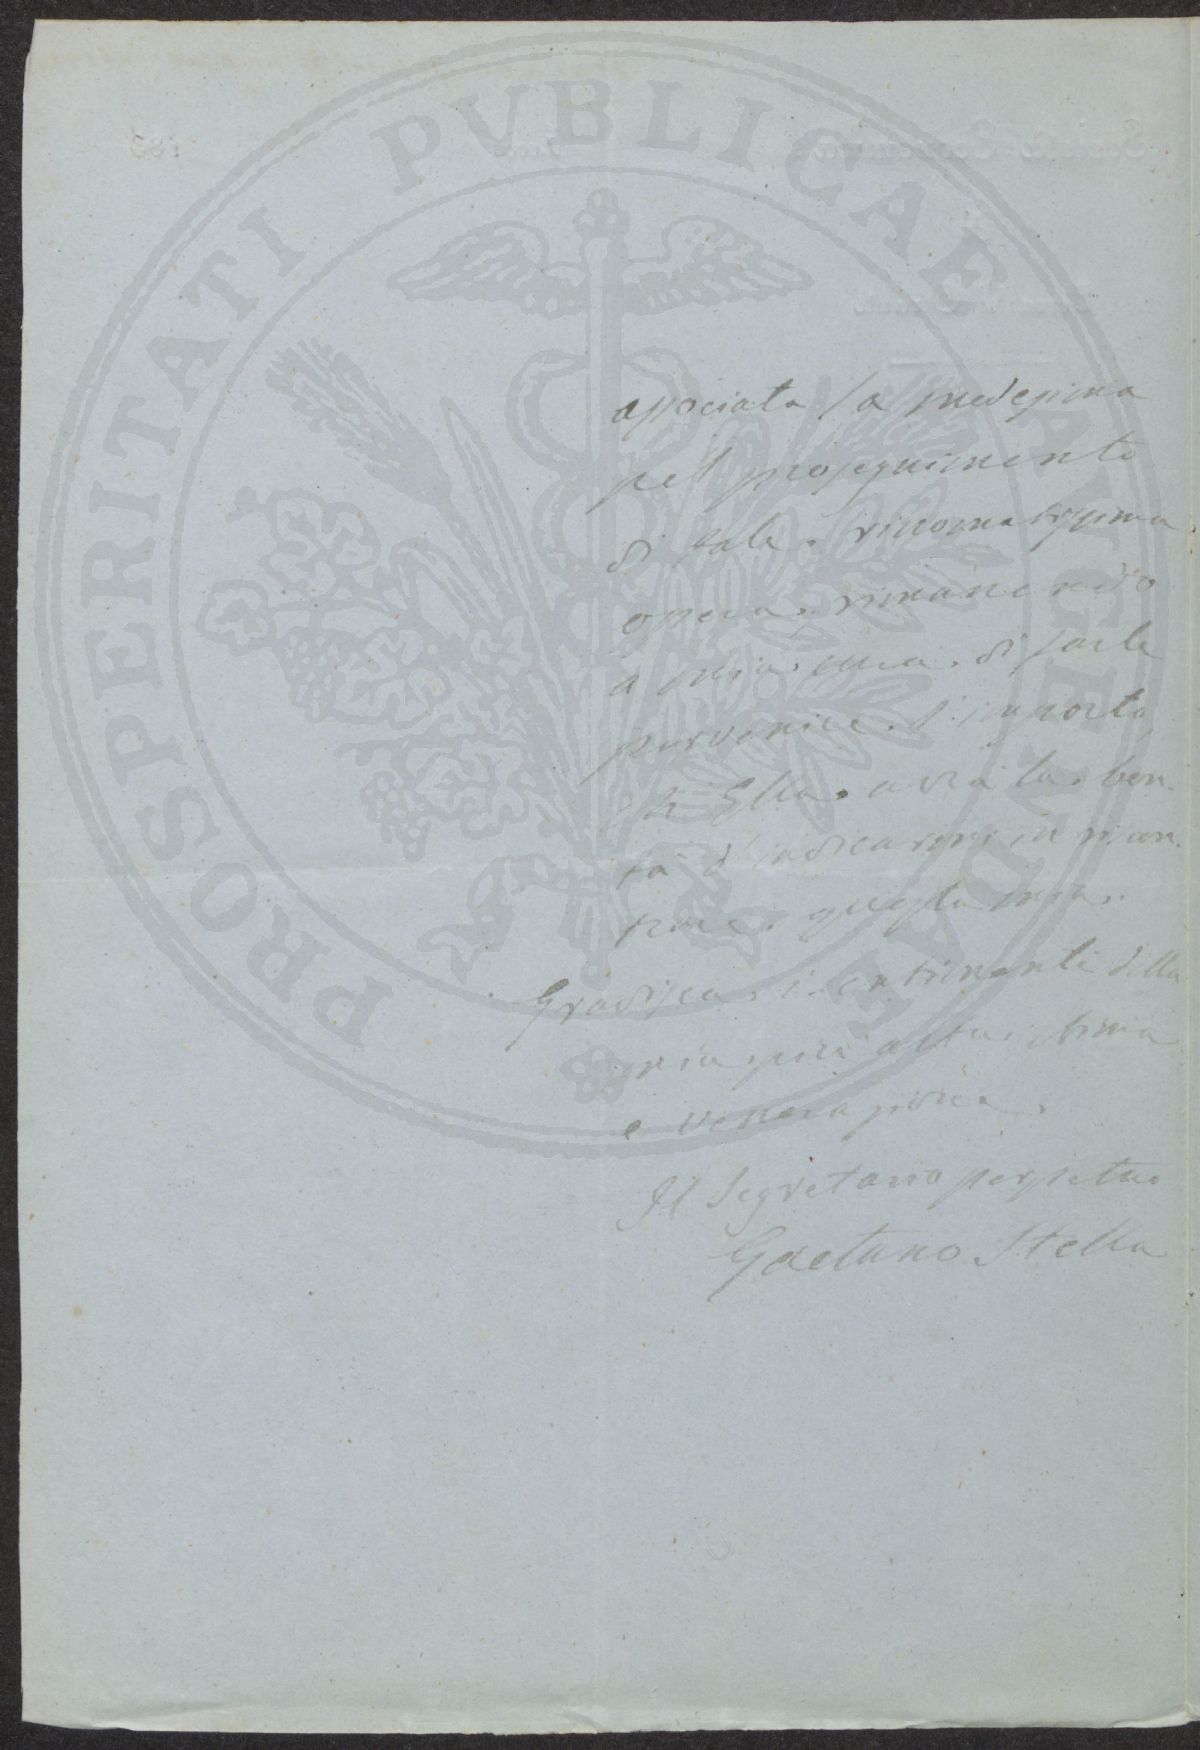 PROSPERITATI PUBLICAE AUGENDAE
associata la medesima
pel proseguimento
di tale rinomatissima
opera, rimanendo
a mia cura di farle
pervenire l'importo,
ch'Ella avrà la bon-
tà d'indicarmi in riscon-
tro
Gradisca i sentimenti della
mia più alta stima
e venerazione.
Il Segretario perpetuo
Gaetano Stella